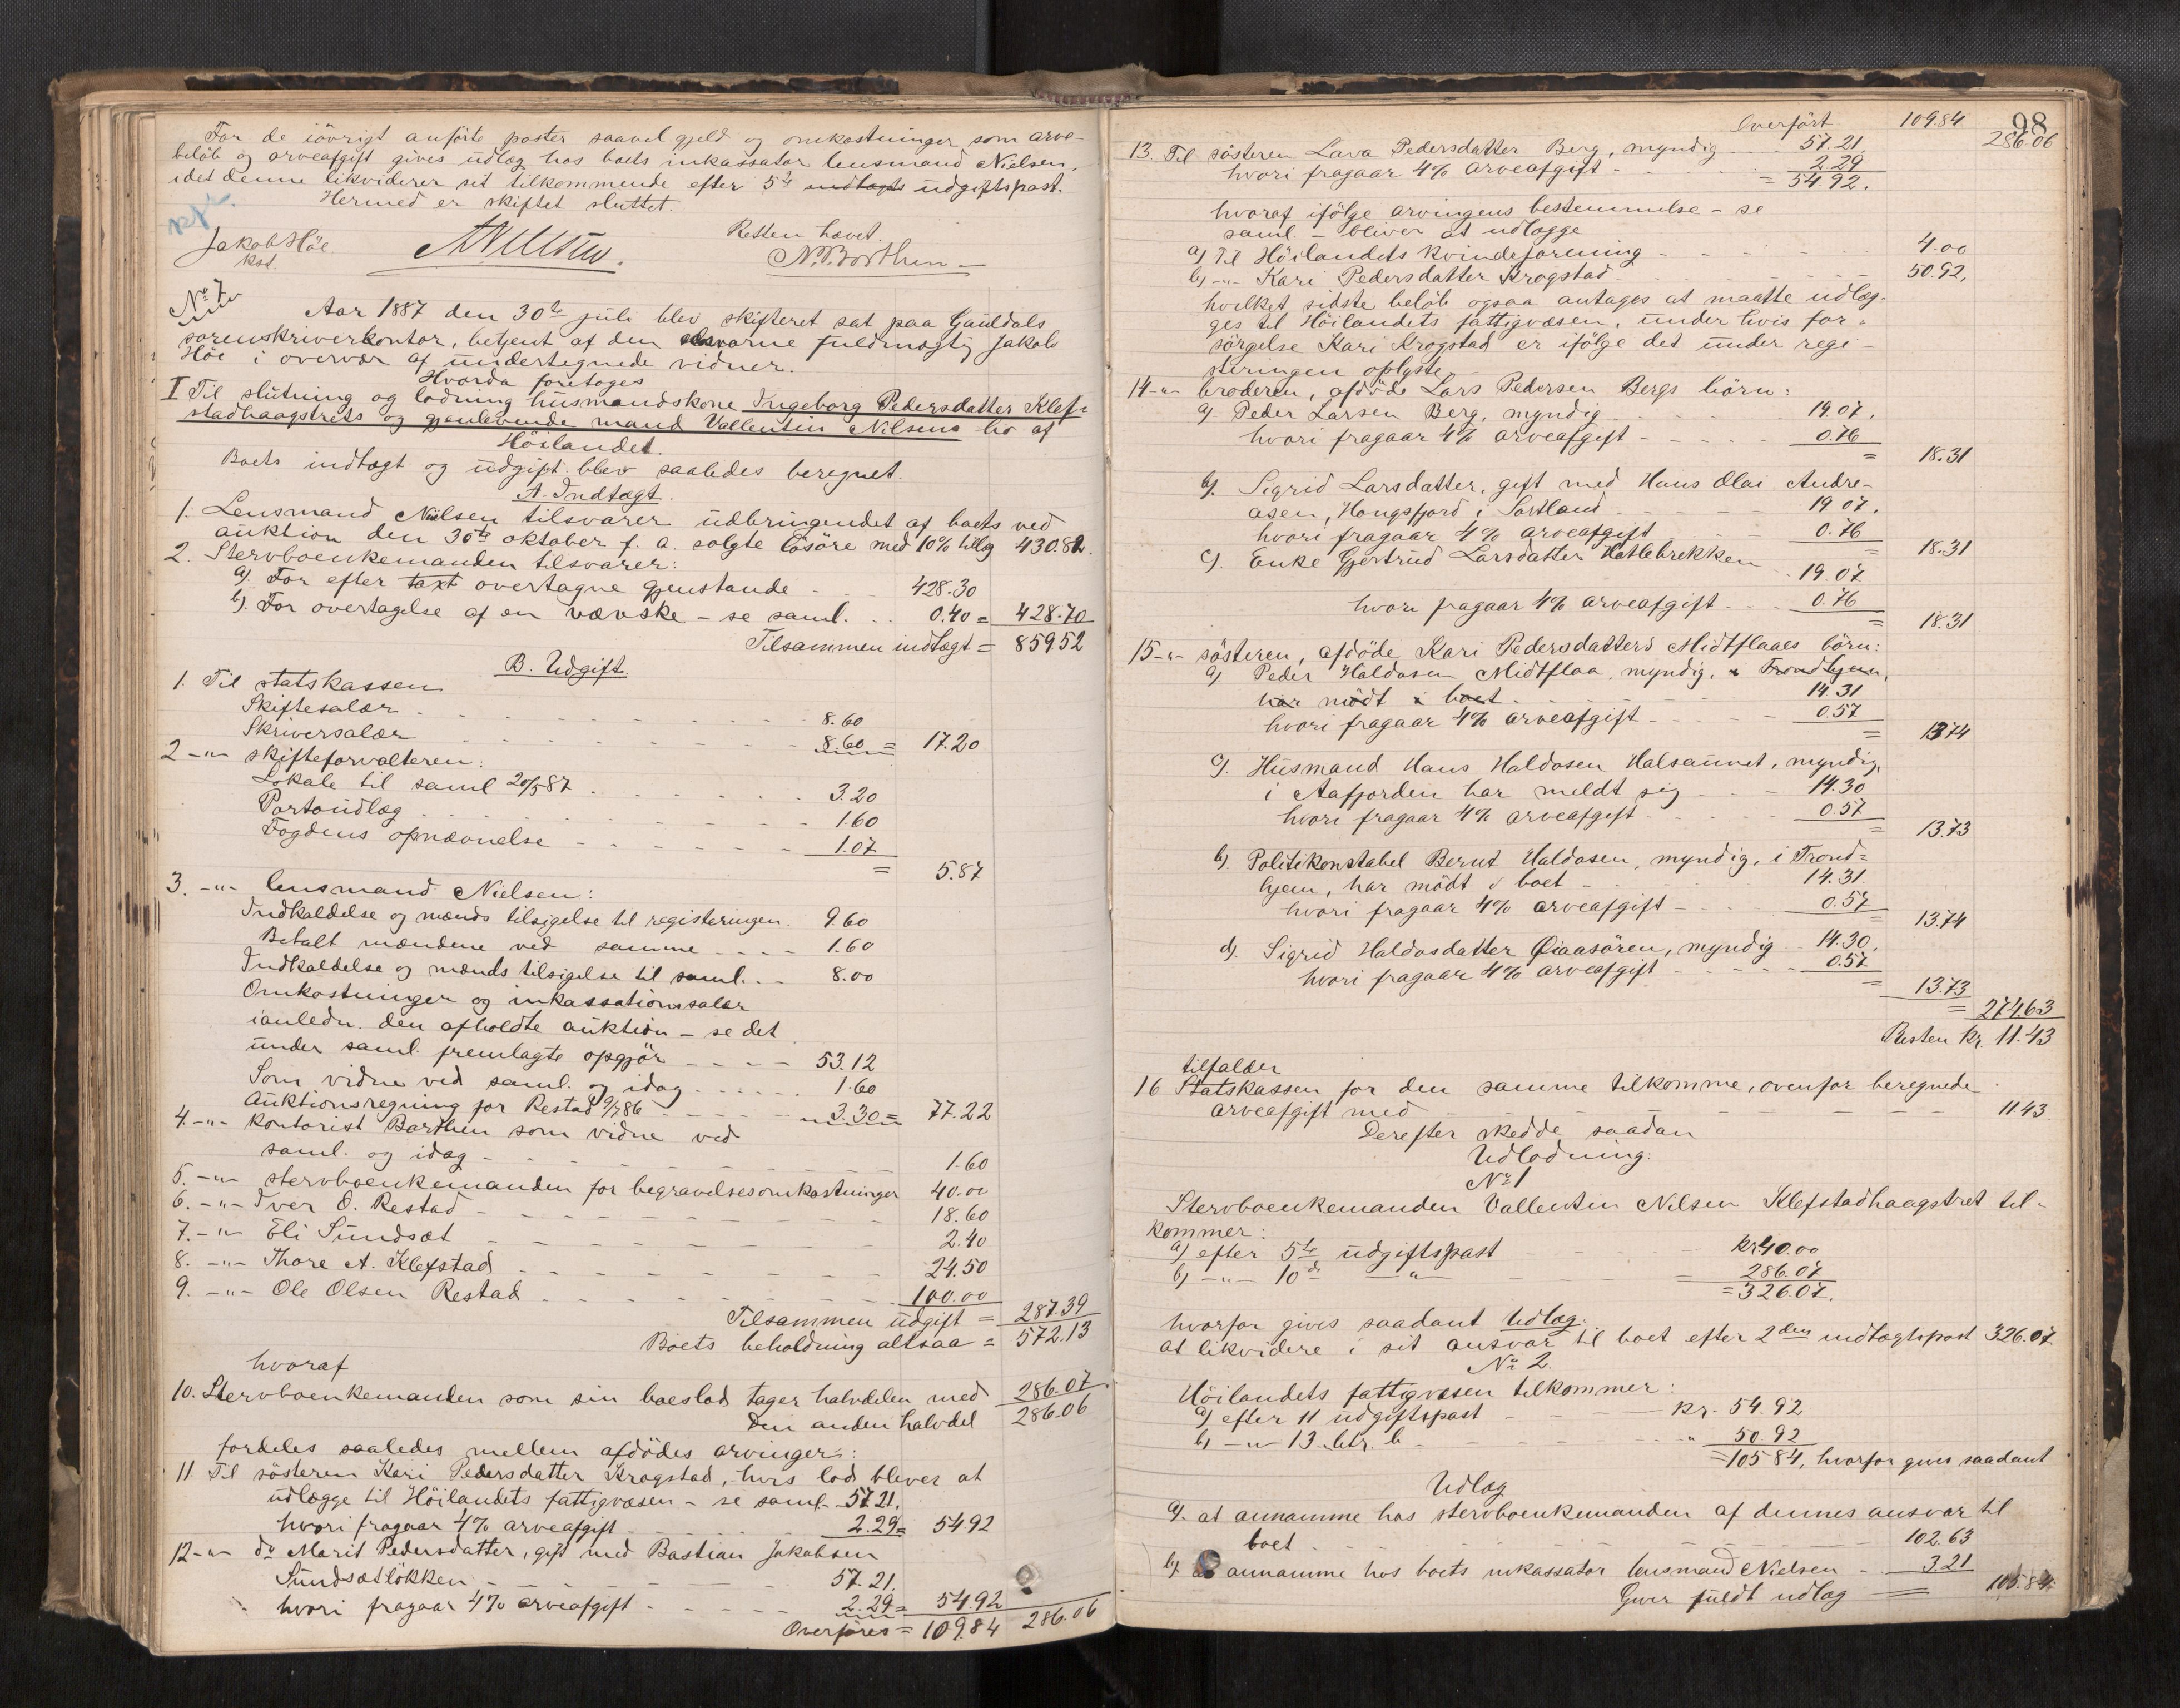 For de iövrigt anförte poster saavel gjeld og omkostninger som arve-
belöb og arveafgift gives udlæg hos boets inkassator lensmand Nielsen,
idet denne likviderer sit tilkommende efter 5te udgiftspost.
Hermed er skiftet sluttet.
Jakob Höe
kst.
Retten hævet.
N. P. Borthen
No 7
Aar 1887 den 30te juli blev skifteret sat paa Guldals
sorenskriverkontor, betjent af den edsvorne fuldmægtig Jakob
Höe i overvær af undertegnede vidner.
Hvorda foretoges
I Til slutning og lodning husmandskone Ingeborg Pedersdatter Klef-
stadhaagstrets og gjenlevende mand Vallentin Nilsens bo af
Höilandet.
Boets indtægt og udgift blev saaledes beregnet.
A. Indtægt.
1. Lensmand Nielsen tilsvarer udbringendet af boets ved
auktion den 30te oktober f. a. solgte lösöre med 10% tillæg 430.82.
2. Stervboenkemanden tilsvarer:
a). For efter taxt overtagne gjenstande 428.30
b). For overtagelse af en vævske - se saml. 0.40 = 428.70
Tilsammen indtægt = 859.52
B. Udgift.
1. Til statskassen
Skiftesalær 8.60
Skriversalær 8.60 = 17.20
2 -"- skifteforvalteren:
Lokale til saml 20/5 87 3.20
Portoudlæg 1.60
Fogdens opnævnelse 1.07
= 5.87
3. -"- lensmand Nielsen:
Indkaldelse og mænds tilsigelse til registeringen. 9.60
Betalt mændene ved samme 1.60
Indkaldelse og mænds tilsigelse til saml. 8.00
Omkostninger og inkassationssalær
ianledn. den afholdte auktion - se det
under saml. fremlagte opgjör 53.12
Som vidne ved saml. og idag 1.60
Auktionsregning for Restad 9/7 86 3.30 = 77.22
4. -"- kontorist Borthen som vidne ved
saml. og idag 1.60
5. -"- stervboenkemanden for begravelsesomkostninger 40.00
6. -"- Iver O. Restad 18.60
7. -"- Eli Sundsæt 2.40
8. -"- Thore A. Klefstad 24.50
9. -"- Ole Olsen Restad 100.00
Tilsammen udgift = 287.39
Boets beholdning altsaa = 572.13
hvoraf
10. Stervboenkemanden som sin boeslod tager halvdelen med 286.07
Den anden halvdel 286.06
fordeles saaledes mellem afdödes arvinger:
11 Til sösteren Kari Pedersdatter Krogstad, hvis lod bliver at
udlægge til Höilandets fattigvæsen - se saml. 57.21.
hvori fragaar 4% arveafgift 2.29 = 54.92
12 -"- do Marit Pedersdatter, gift med Bastian Jakobsen
Sundsætlökken 57.21.
hvori fragaar 4% arveafgift 2.29 = 54.92
Overföres = 109.84 286.06
98
Overfört 109.84 286.06
13. Til sösteren Lava Pedersdatter Berg, myndig 57.21.
hvori fragaar 4% arveafgift 2.29
= 54.92.
hvoraf ifölge arvingens bestemmelse - se
saml. - bliver at udlægge
a) Til Höilandets kvindeforening 4.00
b) -"- Kari Pedersdatter Krogstad 50.92,
hvilket sidste belöb ogsaa antages at maatte udlæg-
ges til Höilandets fattigvæsen, under hvis for-
sörgelse Kari Krogstad er ifölge det under regi-
steringen oplyste
14 -"- broderen, afdöde Lars Pedersen Bergs börn:
a). Peder Larsen Berg, myndig 19.07.
hvori fragaar 4% arveafgift 0.76
= 18.31
b). Sigrid Larsdatter, gift med Hans Olai Andre-
asen, Hongsfjord i Sortland 19 07.
hvori fragaar 4% arveafgift 0.76
= 18.31
c). Enke Gjertrud Larsdatter Hatlebrekken
19.07
hvori fragaar 4% arveafgift 0.76
= 18.31
15 -"- sösteren, afdöde Kari Pedersdatters Midtflaaes börn:
a) Peder Haldosen Midtflaa, myndig, i Trondhjem,
har mödt i boet 14.31
hvori fragaar 4% arveafgift 0.57
= 13.74
c). Husmand Hans Haldosen Halsaunet, myndig,
i Aafjorden har meldt sig 14.30
hvori fragaar 4% arveafgift 0.57
= 13.73
b). Politikonstabel Bernt Haldosen, myndig, i Trond-
hjem, har mödt i boet 14.31.
hvori fragaar 4% arveafgift 0.57
= 13.74
d) Sigrid Haldosdatter Øiaasören, myndig 14.30.
hvori fragaar 4% arveafgift 0.57
= 13.73
= 274.63
Resten kr. 11.43
tilfalder
16 Statskassen for den samme tilkomme, ovenfor beregnede
arveafgift med 11 43
Derefter skedde saadan
Udlodning:
No 1
Stervboenkemanden Vallentin Nilsen Klefstadhaagstret til-
kommer:
a) efter 5te udgiftspost kr 40.00
b) -"- 10de -"- 286.07
= 326.07.
hvorfor gives saadant Udlæg:
at likvidere i sit ansvar til boet efter 2den indtægtspost 326.07
No 2.
Höilandets fattigvæsen tilkommer:
a) efter 11 udgiftspost kr. 54.92
b) -"- 13. litr. b " 50.92
= 105 84, hvorfor gives saadant
Udlæg
a. at annamme hos stervboenkemanden af dennes ansvar til
boet 102.63
b) at annamme hos boets inkassator lensmand Nielsen 3.21
Giver fuldt udlæg = 105.84.